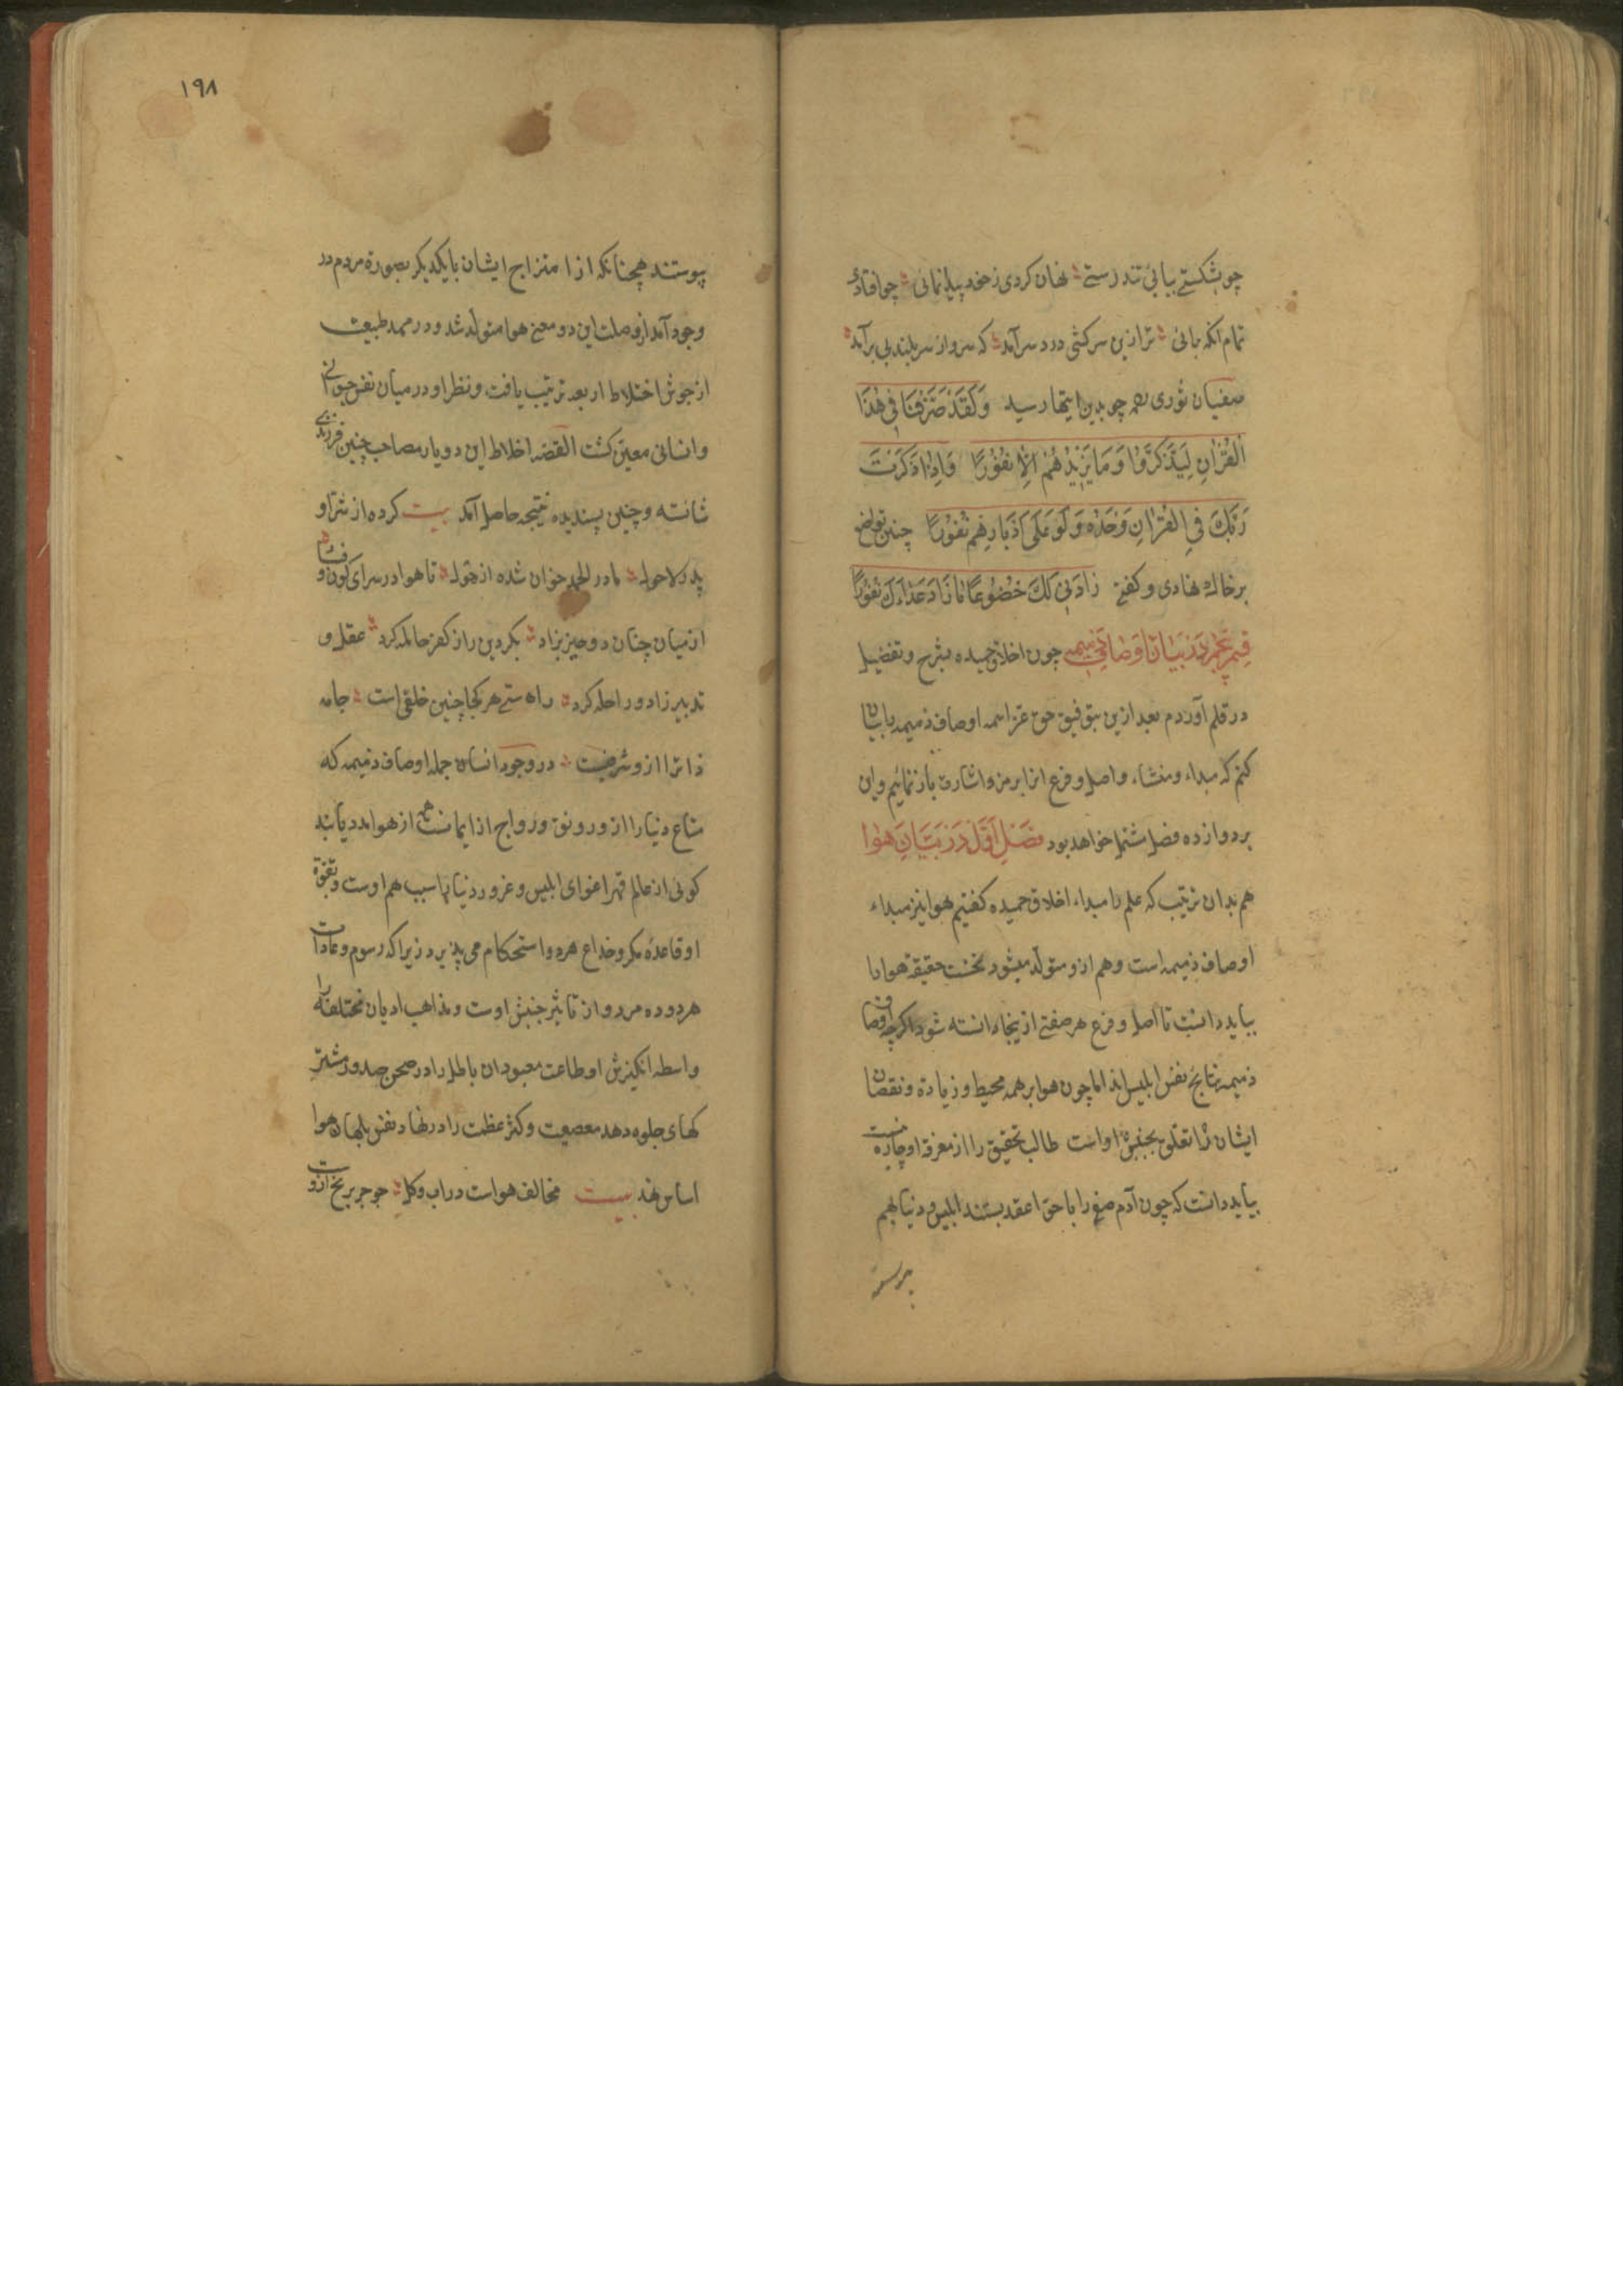 چو بشکستی بیابی تندرستی ؞ نهان کردی ز خود پیدا نمائی ؞ چو افتادی
تمام آنکه بائی ؞ ترا زین سرکشی درد سر آمد ؞ که سرو از سربلندی بی بر آمد ؞
سفیان ثوری رحمه چو بدین ایتها رسید وَلَقَدْ صَرَّفْنَا فِی هٰذَا
الْقُرْاٰنِ لِیَذَّکَّرُوا وَمَا یَزِیْدُهُمْ اِلَّا نُفُوْرًا وَاِذَا ذَکَرْتَ
رَبَّکَ فِی الْقُرْاٰنِ وَحْدَهُ وَلَّوْ عَلَی اَدْبَارِهِمْ نُفُوْرًا چنین تواضع
بر خاک نهادی و کفتی زَادَنِیْ لَکَ خُضُوْعًا مَا زَادَ عَدَاءَکَ نُفُوْرًا
قسم پنجم در بیان اوصاف ذمیمه چون اخلاق حمیده بشرح و تفصیل
در قلم آوردم بعد ازین بتوفیق حق عز اسمه اوصاف ذمیمه را بیان
کنم که مبداء و منشاء و اصل و فرع انرا برمز و اشارت باز نمائیم و این
بر دوازده فصل مشتمل خواهد بود فصل اول در بیان هوا
هم بدان ترتیب که علم را مبداء اخلاق حمیده کفتیم هوا نیز مبداء
اوصاف ذمیمه است و هم ازو متولد میشود نخست حقیقة هوا را
بباید دانست تا اصل و فرع هر صفتی از ینجا دانسته شود اکرچه اوصاف
ذمیمه نتایج نفس ابلیس اند اما چون هوا بر همه محیط و زیادة و نقصان
ایشان را تعلق بجنبش او است طالب تحقیق را از معرفة او چاره نیست
بباید دانست که چون آدم صفی را با حوا عقد بستند ابلیس و دنیا بهم
پیوستند
۱۹۸
پیوستند همچنانکه از امتزاج ایشان بایکدیکر بصورة مردم در
وجود آمد از وصلت این دو معنی هوا متولد شد و در مهد طبیعت
از جوش اختلاط اربعه ترتیب یافت و نظر او در میان نفس حیوانی
و انسانی معین کشت القصه اخلاط این دو یار مصاحب چنین فرزندی
شائسته و چنین پسندیده نتیجه حاصل آمد بیت کرده از شر او
پدر لاحول ؞ مادر الحمد خوان شده از قوله ؞ تا هوا در سرای کون و فساد ؞
از میان چنان دو چیز بزاد ؞ بکر دین را ز کفر حامله کرد ؞ عقل و
تدبیر زاد و راحله کرد ؞ راه ستی هر کجا چنین خلقی است ؞ جامه
ذاترا ازو شرفیست ؞ در وجود انسان جمله اوصاف ذمیمه که
متاع دنیا را از و رونق و رواج از ایمانست همه از هوا مدد یابند
کوئی از عالم قهر اغوای ابلیس و غرور دنیا را سبب هم اوست و بقوة
او قاعده مکر و خداع هر دو استحکام می پذیرد زیرا که رسوم و عادات
هر دو ده مرده از تاثیر جنبش اوست و مذاهب ادیان مختلفه را
واسطه انکیزش او طاعت معبودان باطل را در صحن صدور مشتری
کهای جلوه دهد معصیت و کنز عظمت را در نهاد نفس بلهان هوا
اساس نهد بیت مخالف هواست در اب و کل ؞ جو جر بر یخ ازوت